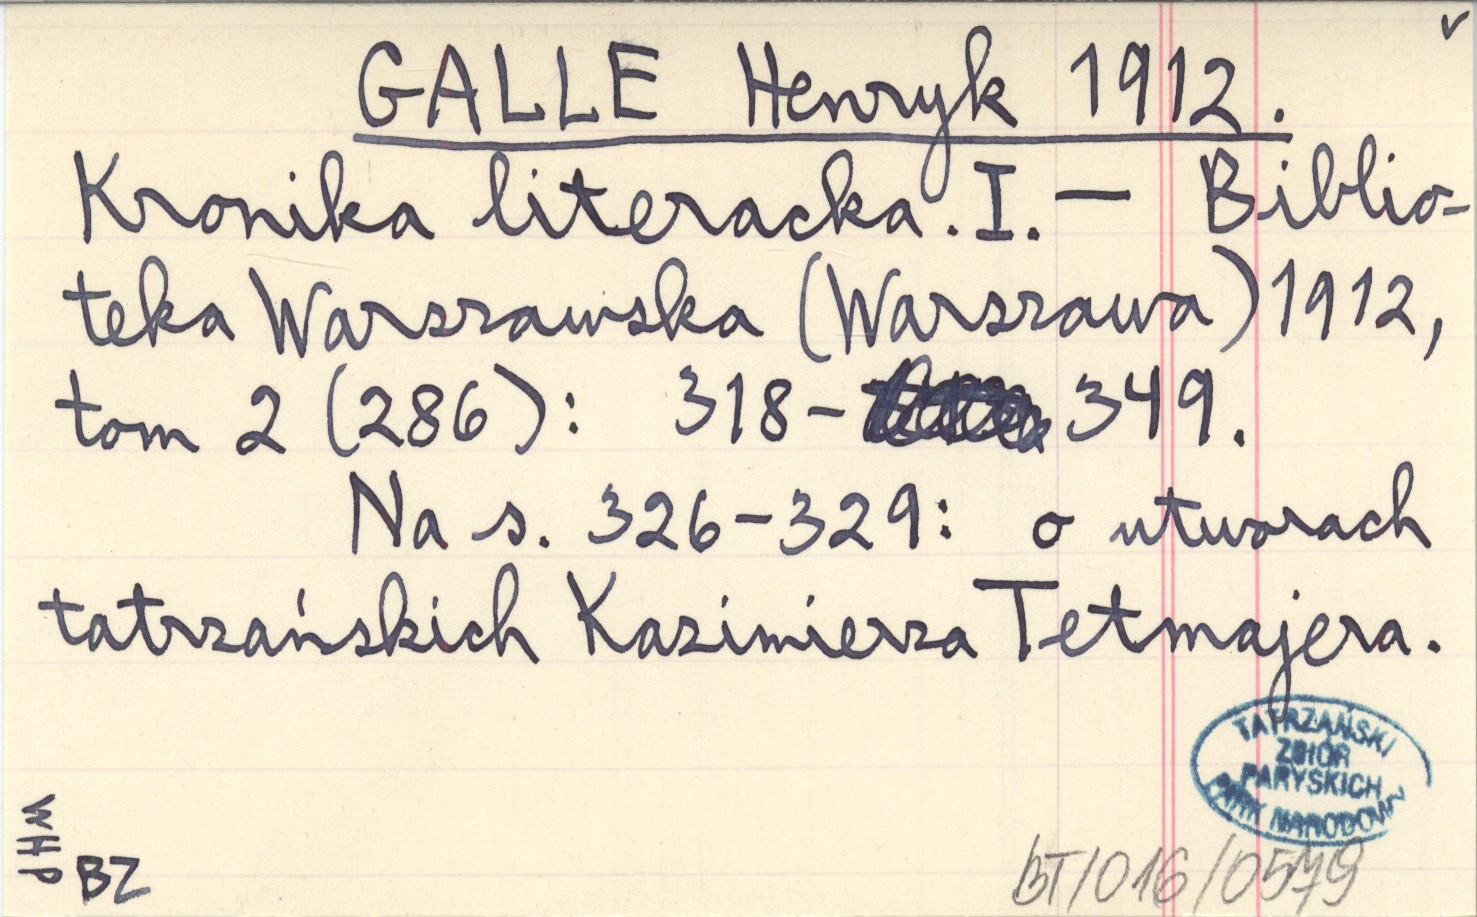 v
GALLE Henryk 1912.
Kronika literacka. I. — Biblio-
teka Warszawska (Warszawa) 1912,
tom 2 (286): 318- 349.
Na s. 326-329: o utworach
tatrzańskich Kazimierza Tetmajera.
TATRZAŃSKI
ZBIÓR
PARYSKICH
PARK NARODOWY
WHP
BZ
BT/016/0579